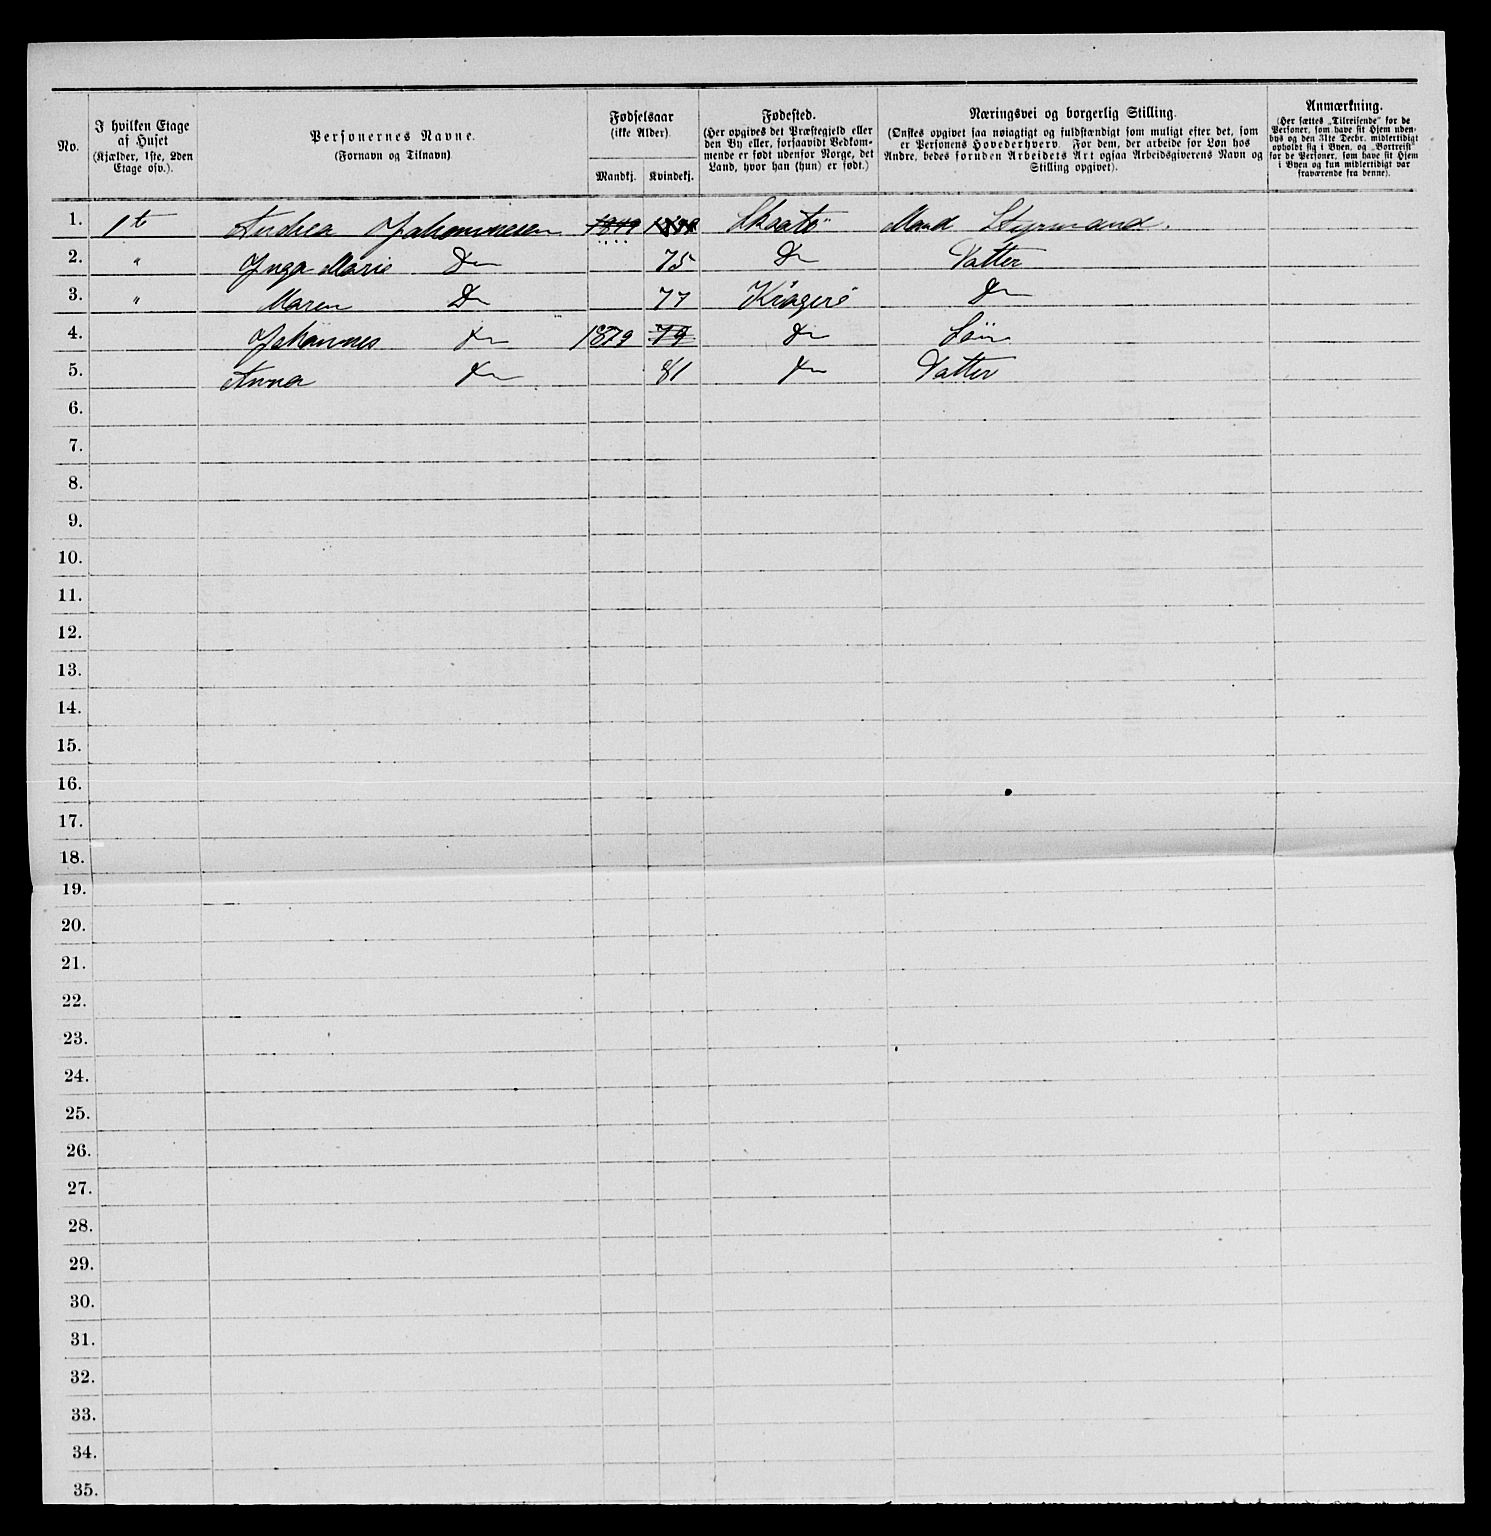 No.
I hvilken Etage af Huset (Kjælder, 1ste, 2den Etage osv.).
Personernes Navne. (Fornavn og Tilnavn)
Fødselsaar (ikke Alder).
Mandkj.
Kvindekj.
Fødested. (Her opgives det Præstegjeld eller den By eller, forsaavidt Vedkommende er født udenfor Norge, det Land, hvor han (hun) er født.)
Næringsvei og borgerlig Stilling. (Ønskes opgivet saa nøiagtigt og fuldstændigt som muligt efter det, som er Personens Hovederhverv. For dem, der arbeide for Løn hos Andre, bedes foruden Arbeidets Art ogsaa Arbeidsgiverens Navn og Stilling opgivet).
Anmærkning. (Her sættes „Tilreisende" for de Personer, som have sit Hjem udenbys og den 31te Decbr. midlertidigt opholdt sig i Byen, og „Bortreist" for de Personer, som have sit Hjem i Byen og kun midlertidigt var fraværende fra denne).
1. 1te Andrea Johannesen 1849 Skaatö Mand Styrmand.
2. " Inga Marie Do 75 Do Datter
3. " Maren Do 77 Kragerö Do
4. Johannes Do 1879 79 Do Sön
5. Anna Do 81 Do Datter
6.
7.
8.
9.
10.
11.
12.
13.
14.
15.
16.
17.
18.
19.
20.
21.
22.
23.
24.
25.
26.
27.
28.
29.
30.
31.
32.
33.
34.
35.